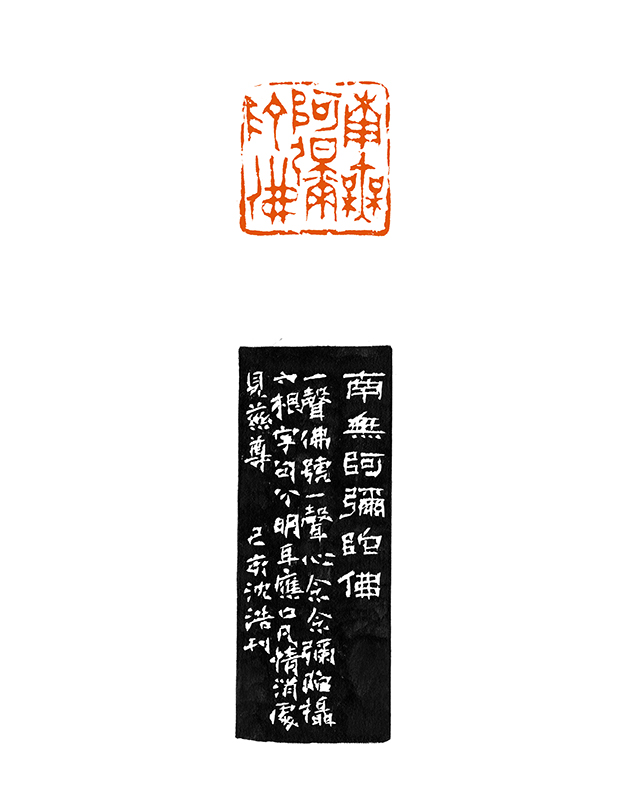 南無
阿彌
陀佛
南無阿彌陀佛
一聲佛號一聲心念念彌陀攝
六根字句分明耳應口凡情消處
見慈尊 己亥沈浩刊